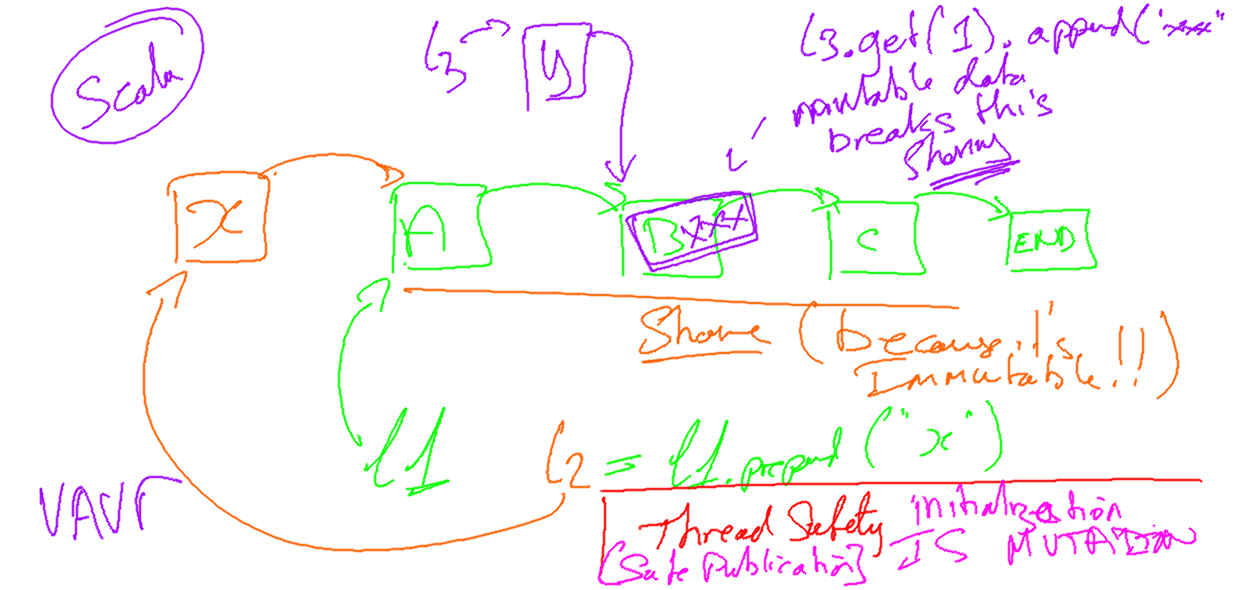 Scala
l3
y
l3.get(1).append("xxx"
mutable data
breaks this
Sharing
X
A
BXXX
C
END
Share (because it's
Immutable!!)
l1
l2 = l1.prepend("x")
VAVr
Thread Safety initialization
[Safe Publication] IS MUTATION